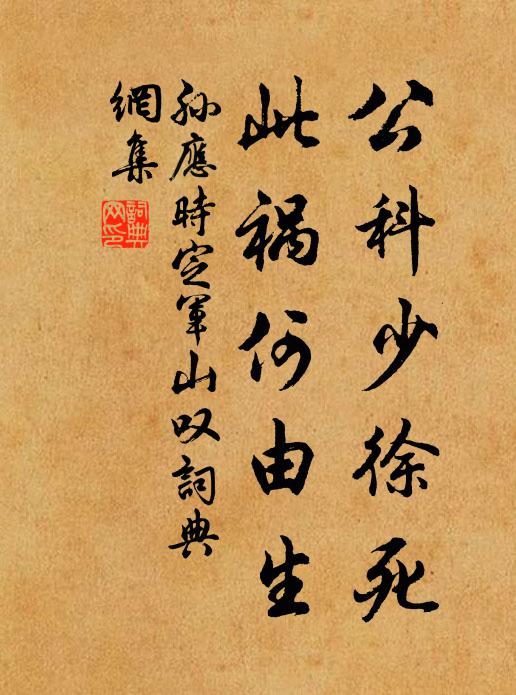 公科少徐死
此祸何由生
孙應時定军山叹詞典
網集
詞典
网印